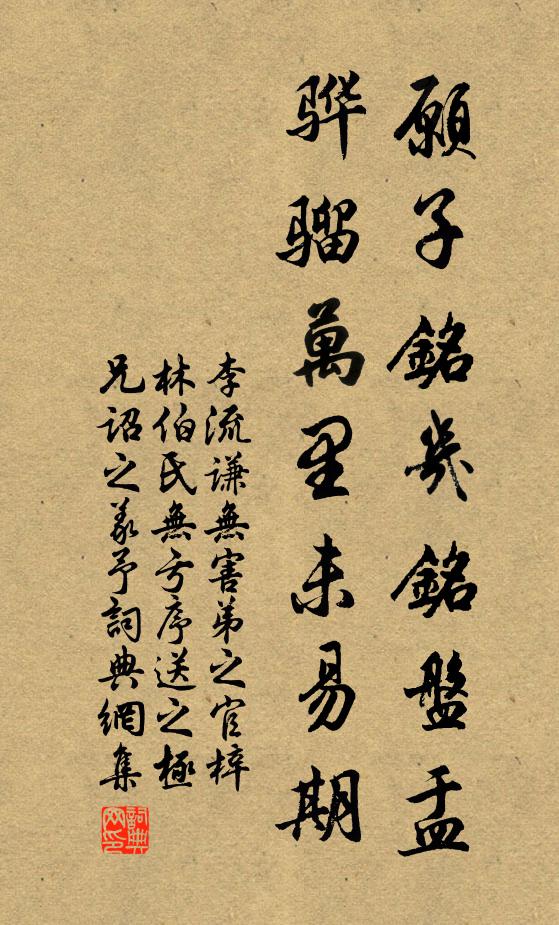 願子銘幾銘盤盂
骅骝萬里未易期
李流謙無害弟之官梓
林伯氏無亏序送之極
兄詔之義予詞典網集
詞典网印